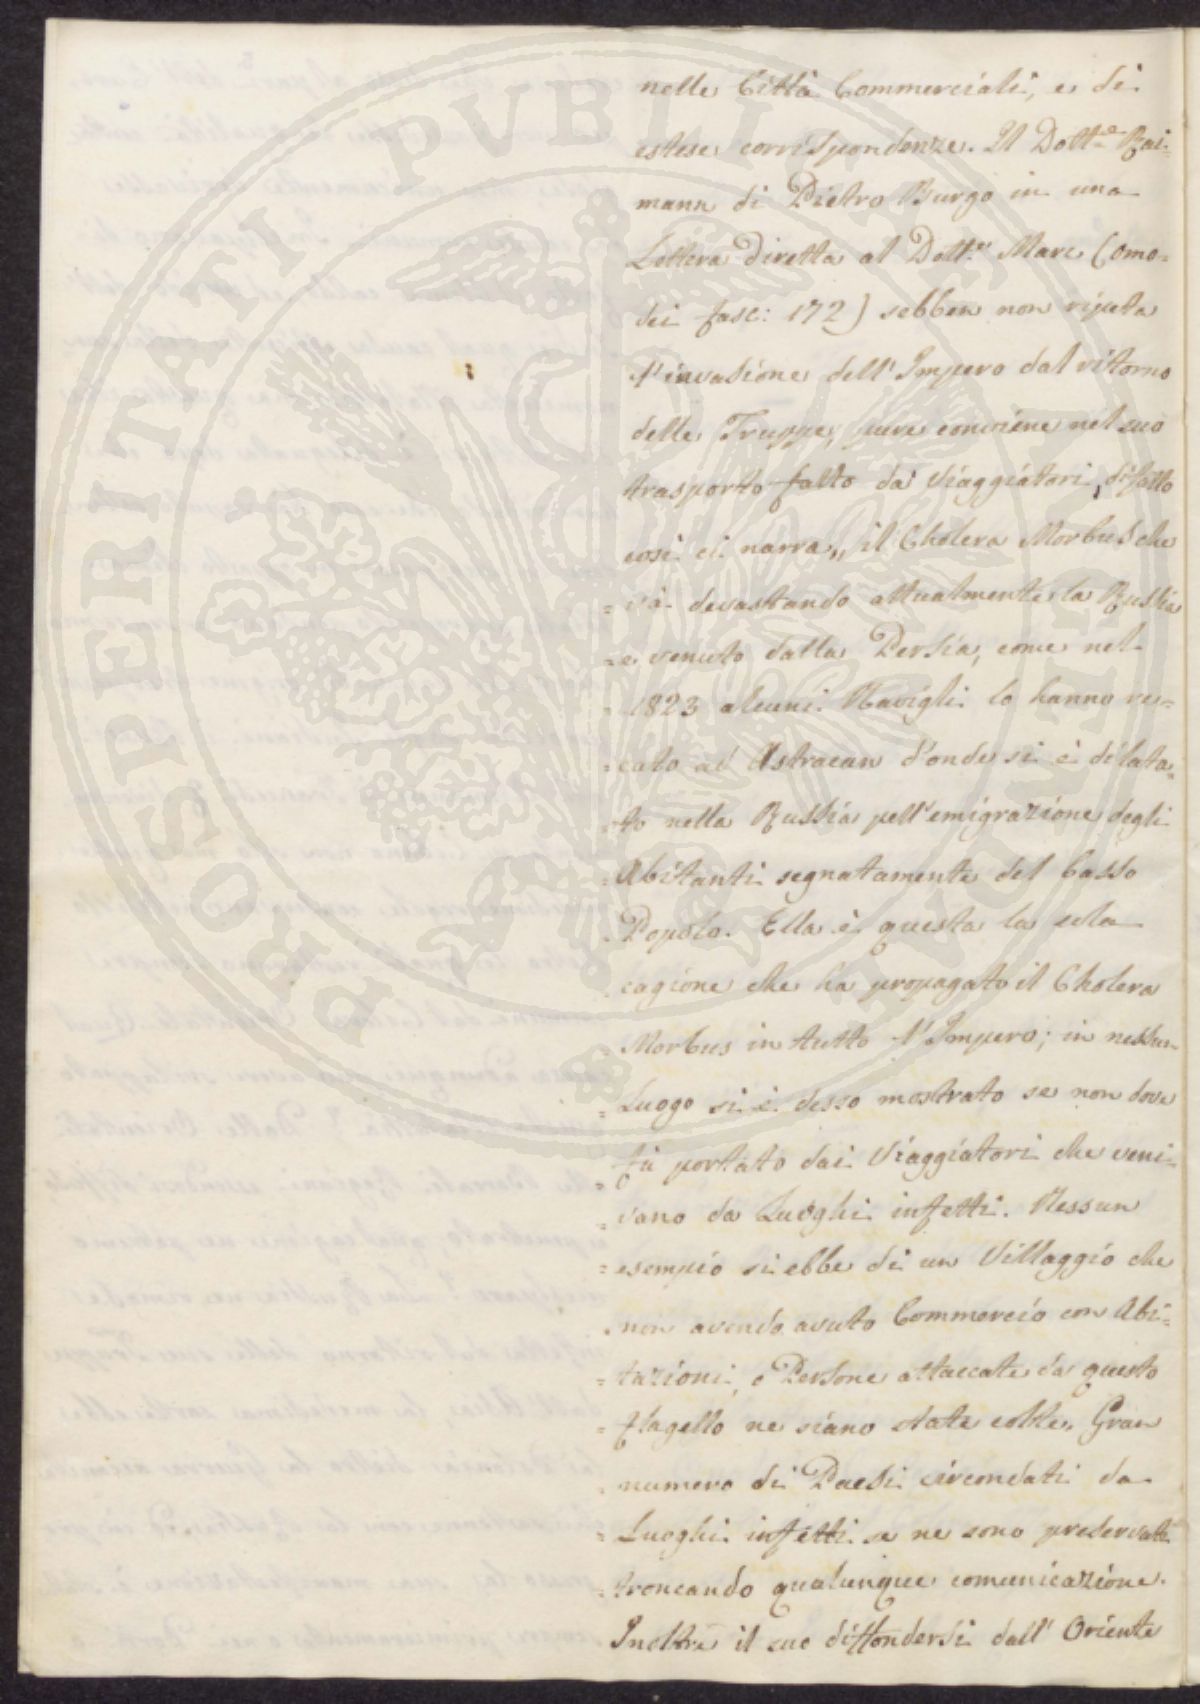 nelle Città Commerciali, e di
estese corrispondenze. Il Dott.re Rai-
mann di Pietro Burgo in una
Lettera diretta al Dott.r Marc (Omo-
dei fasc: 172) sebben non ripeta
l'invasione dell'Impero dal ritorno
delle Truppe, pure conviene nel suo
trasporto fatto da Viaggiatori, difatto
così ci narra „ il Cholera Morbus che
= và devastando attualmente la Russia
= e venuto dalla Persia, come nel
= 1823 alcuni Navigli lo hanno re-
= cato ad Astracan d'onde si è dilata-
= to nella Russia pell'emigrazione degli
= Abitanti segnatamente del basso
= Popolo. Ella è questa la sola
= cagione che ha propagato il Cholera
= Morbus in tutto l'Impero; in nessun
= Luogo si è desso mostrato se non dove
= fù portato dai Viaggiatori che veni-
= vano da Luoghi infetti. Nessun
= esempio si ebbe di un Villaggio che
= non avendo avuto Commercio con Abi-
= tazioni, o Persone attaccate da questo
= flagello ne siano state colte „ Gran
= numero di Paesi circondati da
= Luoghi infetti se ne sono preservati
= troncando qualunque comunicazione.
Inoltre il suo diffondersi dall'Oriente
PROSPERITATI PUBLICAE